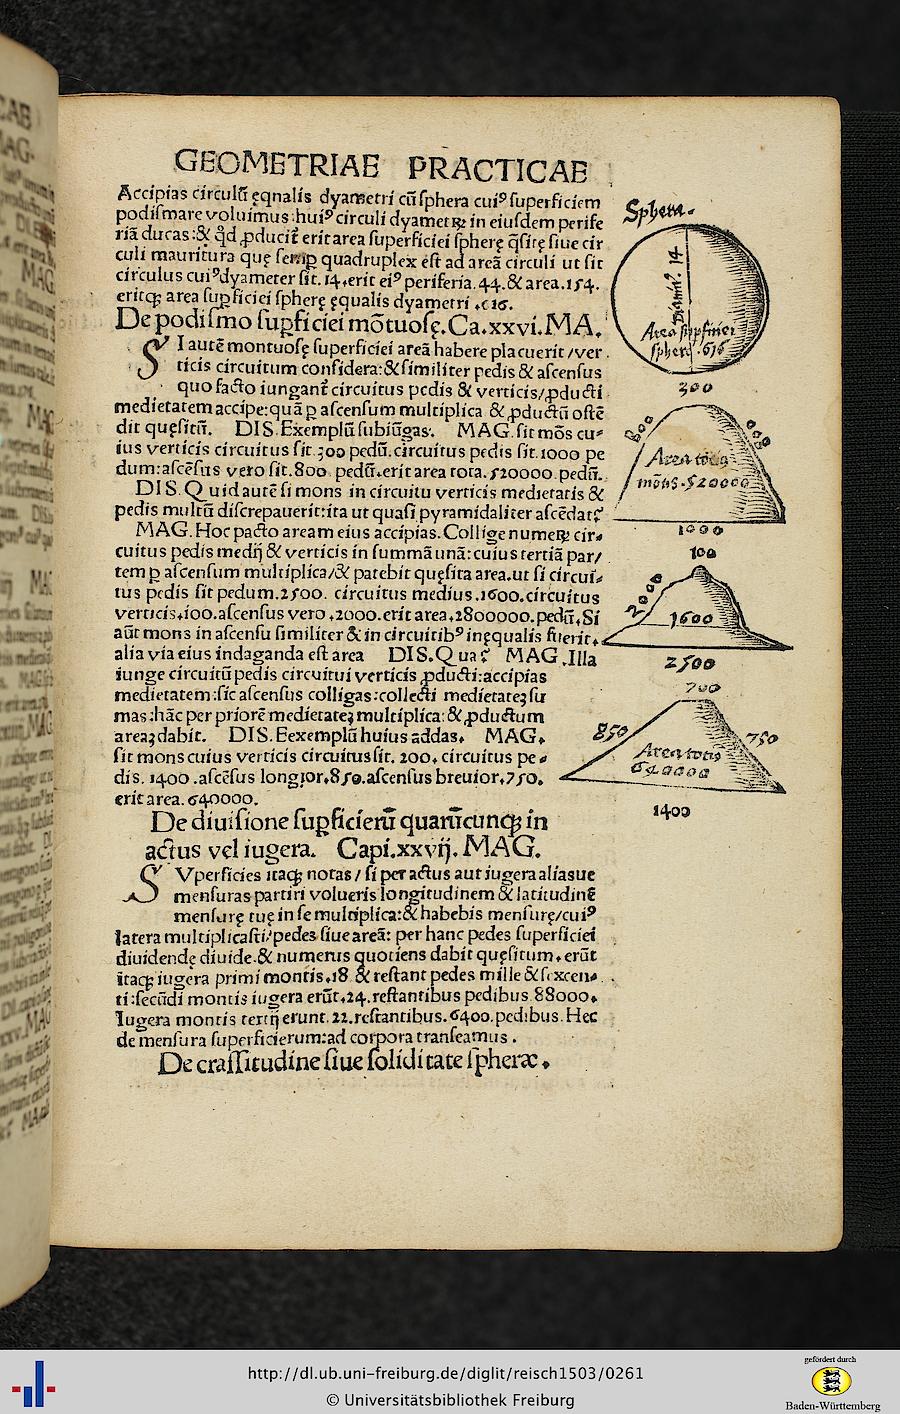 GEOMETRIAE PRACTICAE
Accipias circulū ęqnalis dyametri cū sphera cuiꝰ superficiem
podismare voluimus: huiꝰ circuli dyametrꝝ in eiusdem perife
riā ducas: & qd ꝓducit̄ erit area superficiei spherę q̄sitę siue cir
culi mauritura quę semꝑ quadruplex est ad areā circuli ut sit
circulus cuiꝰ dyameter sit .14. erit eiꝰ periferia .44. & area .154.
eritqꝫ area suꝑficiei spherę ęqualis dyametri .616.
De podismo suꝑficiei mōtuosę. Ca. xxvi. MA.
SI autē montuosę superficiei areā habere placuerit / ver
ticis circuitum considera: & similiter pedis & ascensus
quo facto iungant̄ circuitus pedis & verticis / ꝓducti
medietatem accipe: quā ꝑ ascensum multiplica & ꝓductū ostē
dit quęsitū. DIS. Exemplū subiūgas. MAG. sit mōs cu=
ius verticis circuitus sit .300 pedū. circuitus pedis sit .1000 pe
dum: ascēsus vero sit .800. pedū. erit area tota .520000. pedū.
DIS. Quid autē si mons in circuitu verticis medietatis &
pedis multū discrepauerit: ita ut quasi pyramidaliter ascēdat?
MAG. Hoc pacto aream eius accipias. Collige numerꝝ cir=
cuitus pedis medij & verticis in summā unā: cuius tertiā par/
tem ꝑ ascensum multiplica / & patebit quęsita area. ut si circui=
tus pedis sit pedum .2500. circuitus medius .1600. circuitus
verticis .100. ascensus vero .2000. erit area .2800000. pedū. Si
aūt mons in ascensu similiter & in circuitibꝰ inęqualis fuerit.
alia via eius indaganda est area DIS. Qua? MAG. Illa
iunge circuitū pedis circuitui verticis ꝓducti: accipias
medietatem: sic ascensus colligas: collecti medietateꝫ su
mas: hāc per priorē medietateꝫ multiplica: & ꝓductum
areaꝫ dabit. DIS. Eexemplū huius addas. MAG.
sit mons cuius verticis circuitus sit .200. circuitus pe=
dis .1400. ascēsus longior .850. ascensus breuior .750.
erit area .640000.
De diuisione suꝑficierū quarūcunqꝫ in
actus vel iugera. Capi. xxvij. MAG.
SVperficies itaqꝫ notas / si per actus aut iugera aliasue
mensuras partiri volueris longitudinem & latitudinē
mensurę tuę in se multiplica: & habebis mensurę / cuiꝰ
latera multiplicasti / pedes siue areā: per hanc pedes superficiei
diuidendę diuide. & numerus quotiens dabit quęsitum. erūt
itaqꝫ iugera primi montis .18 & restant pedes mille & sexcen=
ti: secūdi montis iugera erūt .24. restantibus pedibus 88000.
Iugera montis tertij erunt .22. restantibus .6400. pedibus. Hec
de mensura superficierum: ad corpora transeamus.
De crassitudine siue soliditate spheræ.
Sphera.
Diametꝰ. 14
Area suꝑficiei
spherę .616
300
800
800
Area totaꝰ
mōtis .520000
1000
100
2000
1600
2500
700
850
750
Area totiꝰ
640000
1400
http://dl.ub.uni-freiburg.de/diglit/reisch1503/0261
© Universitätsbibliothek Freiburg
gefördert durch
Baden-Württemberg